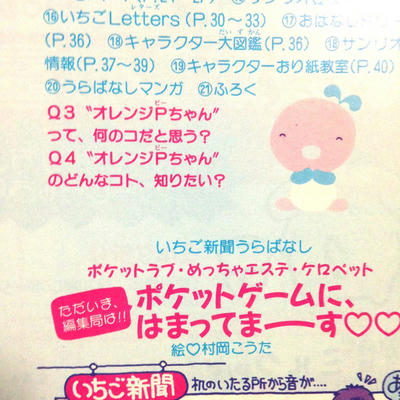 ⑯いちごLetters(P.30〜33) ⑰おはなし
レターズ
(P.36) ⑱キャラクター大図鑑(P.36) ⑱サンリオ
だいずかん
情報(P.37〜39) ⑲キャラクターおり紙教室(P.40)
⑳うらばなしマンガ ㉑ふろく
Q3 “オレンジPちゃん”
ピー
って、何のコだと思う?
Q4 “オレンジPちゃん”
ピー
のどんなコト、知りたい?
いちご新聞うらばなし
ポケットラブ・めっちゃエステ・ケロペット
ただいま、
編集局は!!
ポケットゲームに、
はまってまーーす♡♡
絵♡村岡こうた
いちご新聞
机のいたる所から音が‥‥
お